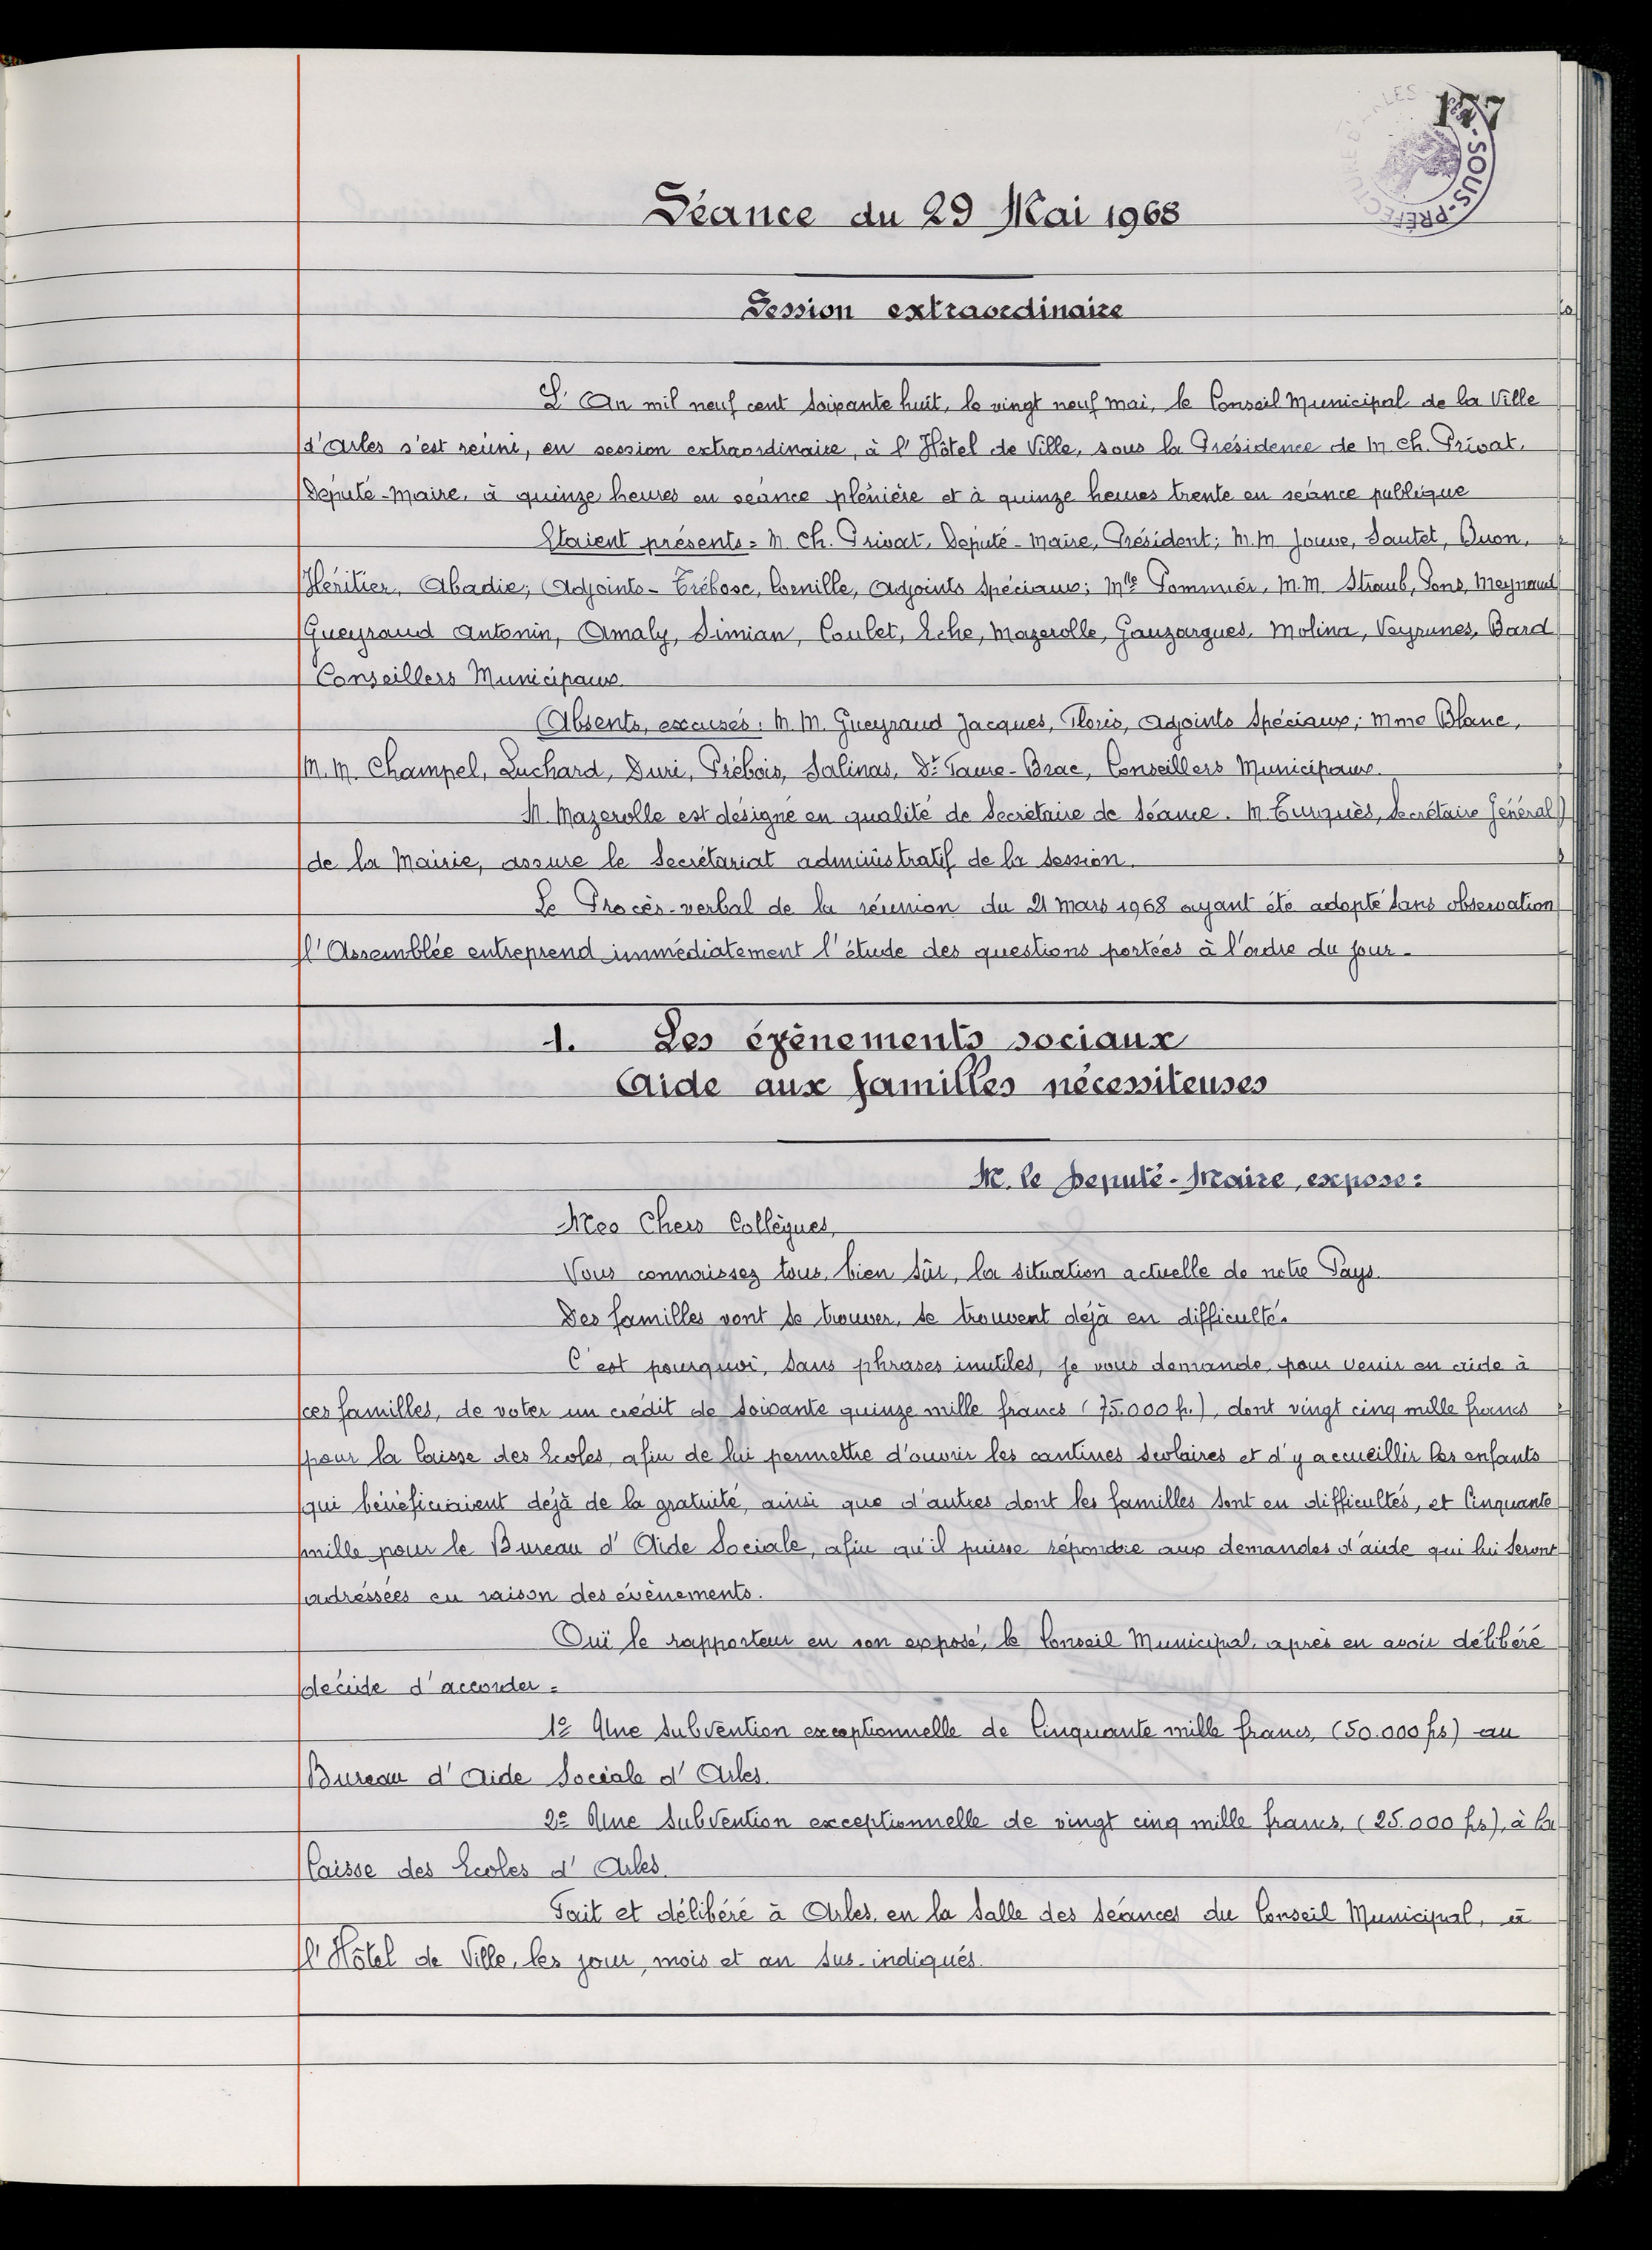 177
SOUS-PRÉFECTURE D'ARLES
Séance du 29 Mai 1968
Session extraordinaire
L'An mil neuf cent soixante huit, le vingt neuf mai, le Conseil Municipal de la Ville
d'Arles s'est réuni, en session extraordinaire, à l'Hôtel de Ville, sous la Présidence de M Ch. Privat,
Député-Maire, à quinze heures en séance plénière et à quinze heures trente en séance publique
Etaient présents = M. Ch. Privat, Député-Maire, Président; M.M Jouve, Sautet, Buon,
Héritier, Abadie; Adjoints - Trébosc, Cornille, Adjoints Spéciaux; Mlle Pommiér, M.M. Straub, Pons, Meynaud
Gueyraud Antonin, Amaly, Simian, Coulet, Eche, Mazerolle, Gauzargues, Molina, Veyrunes, Bard
Conseillers Municipaux.
Absents, excusés : M.M. Gueyraud Jacques, Floris, Adjoints Spéciaux; Mme Blanc,
M.M. Champel, Luchard, Duri, Prébois, Salinas, Dr Faure-Brac, Conseillers Municipaux.
M. Mazerolle est désigné en qualité de Secrétaire de Séance. M. Turquès, Secrétaire Général
de la Mairie, assure le Secrétariat administratif de la session.
Le Procès-verbal de la réunion du 21 mars 1968 ayant été adopté sans observation
l'Assemblée entreprend immédiatement l'étude des questions portées à l'ordre du jour.
1. Les évènements sociaux
Aide aux familles nécessiteuses
M. le Député-Maire, expose :
Mes Chers Collègues,
Vous connaissez tous, bien sûr, la situation actuelle de notre Pays.
Des familles vont se trouver, se trouvent déjà en difficulté.
C'est pourquoi, sans phrases inutiles, je vous demande, pour venir en aide à
ces familles, de voter un crédit de soixante quinze mille francs (75.000 fr.), dont vingt cinq mille francs
pour la Caisse des Ecoles, afin de lui permettre d'ouvrir les cantines scolaires et d'y accueillir les enfants
qui bénéficiaient déjà de la gratuité, ainsi que d'autres dont les familles sont en difficultés, et Cinquante
mille pour le Bureau d'Aide Sociale, afin qu'il puisse répondre aux demandes d'aide qui lui seront
adréssées en raison des évènements.
Ouï le rapporteur en son exposé, le Conseil Municipal, après en avoir délibéré
décide d'accorder =
1º Une subvention exceptionnelle de Cinquante mille francs, (50.000 frs) au
Bureau d'Aide Sociale d'Arles.
2º Une subvention exceptionnelle de vingt cinq mille francs, (25.000 frs), à la
Caisse des Ecoles d'Arles.
Fait et délibéré à Arles, en la Salle des séances du Conseil Municipal, à
l'Hôtel de Ville, les jour, mois et an sus-indiqués.